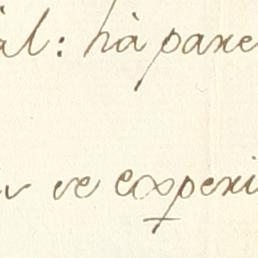 al: hà pare
ve experi